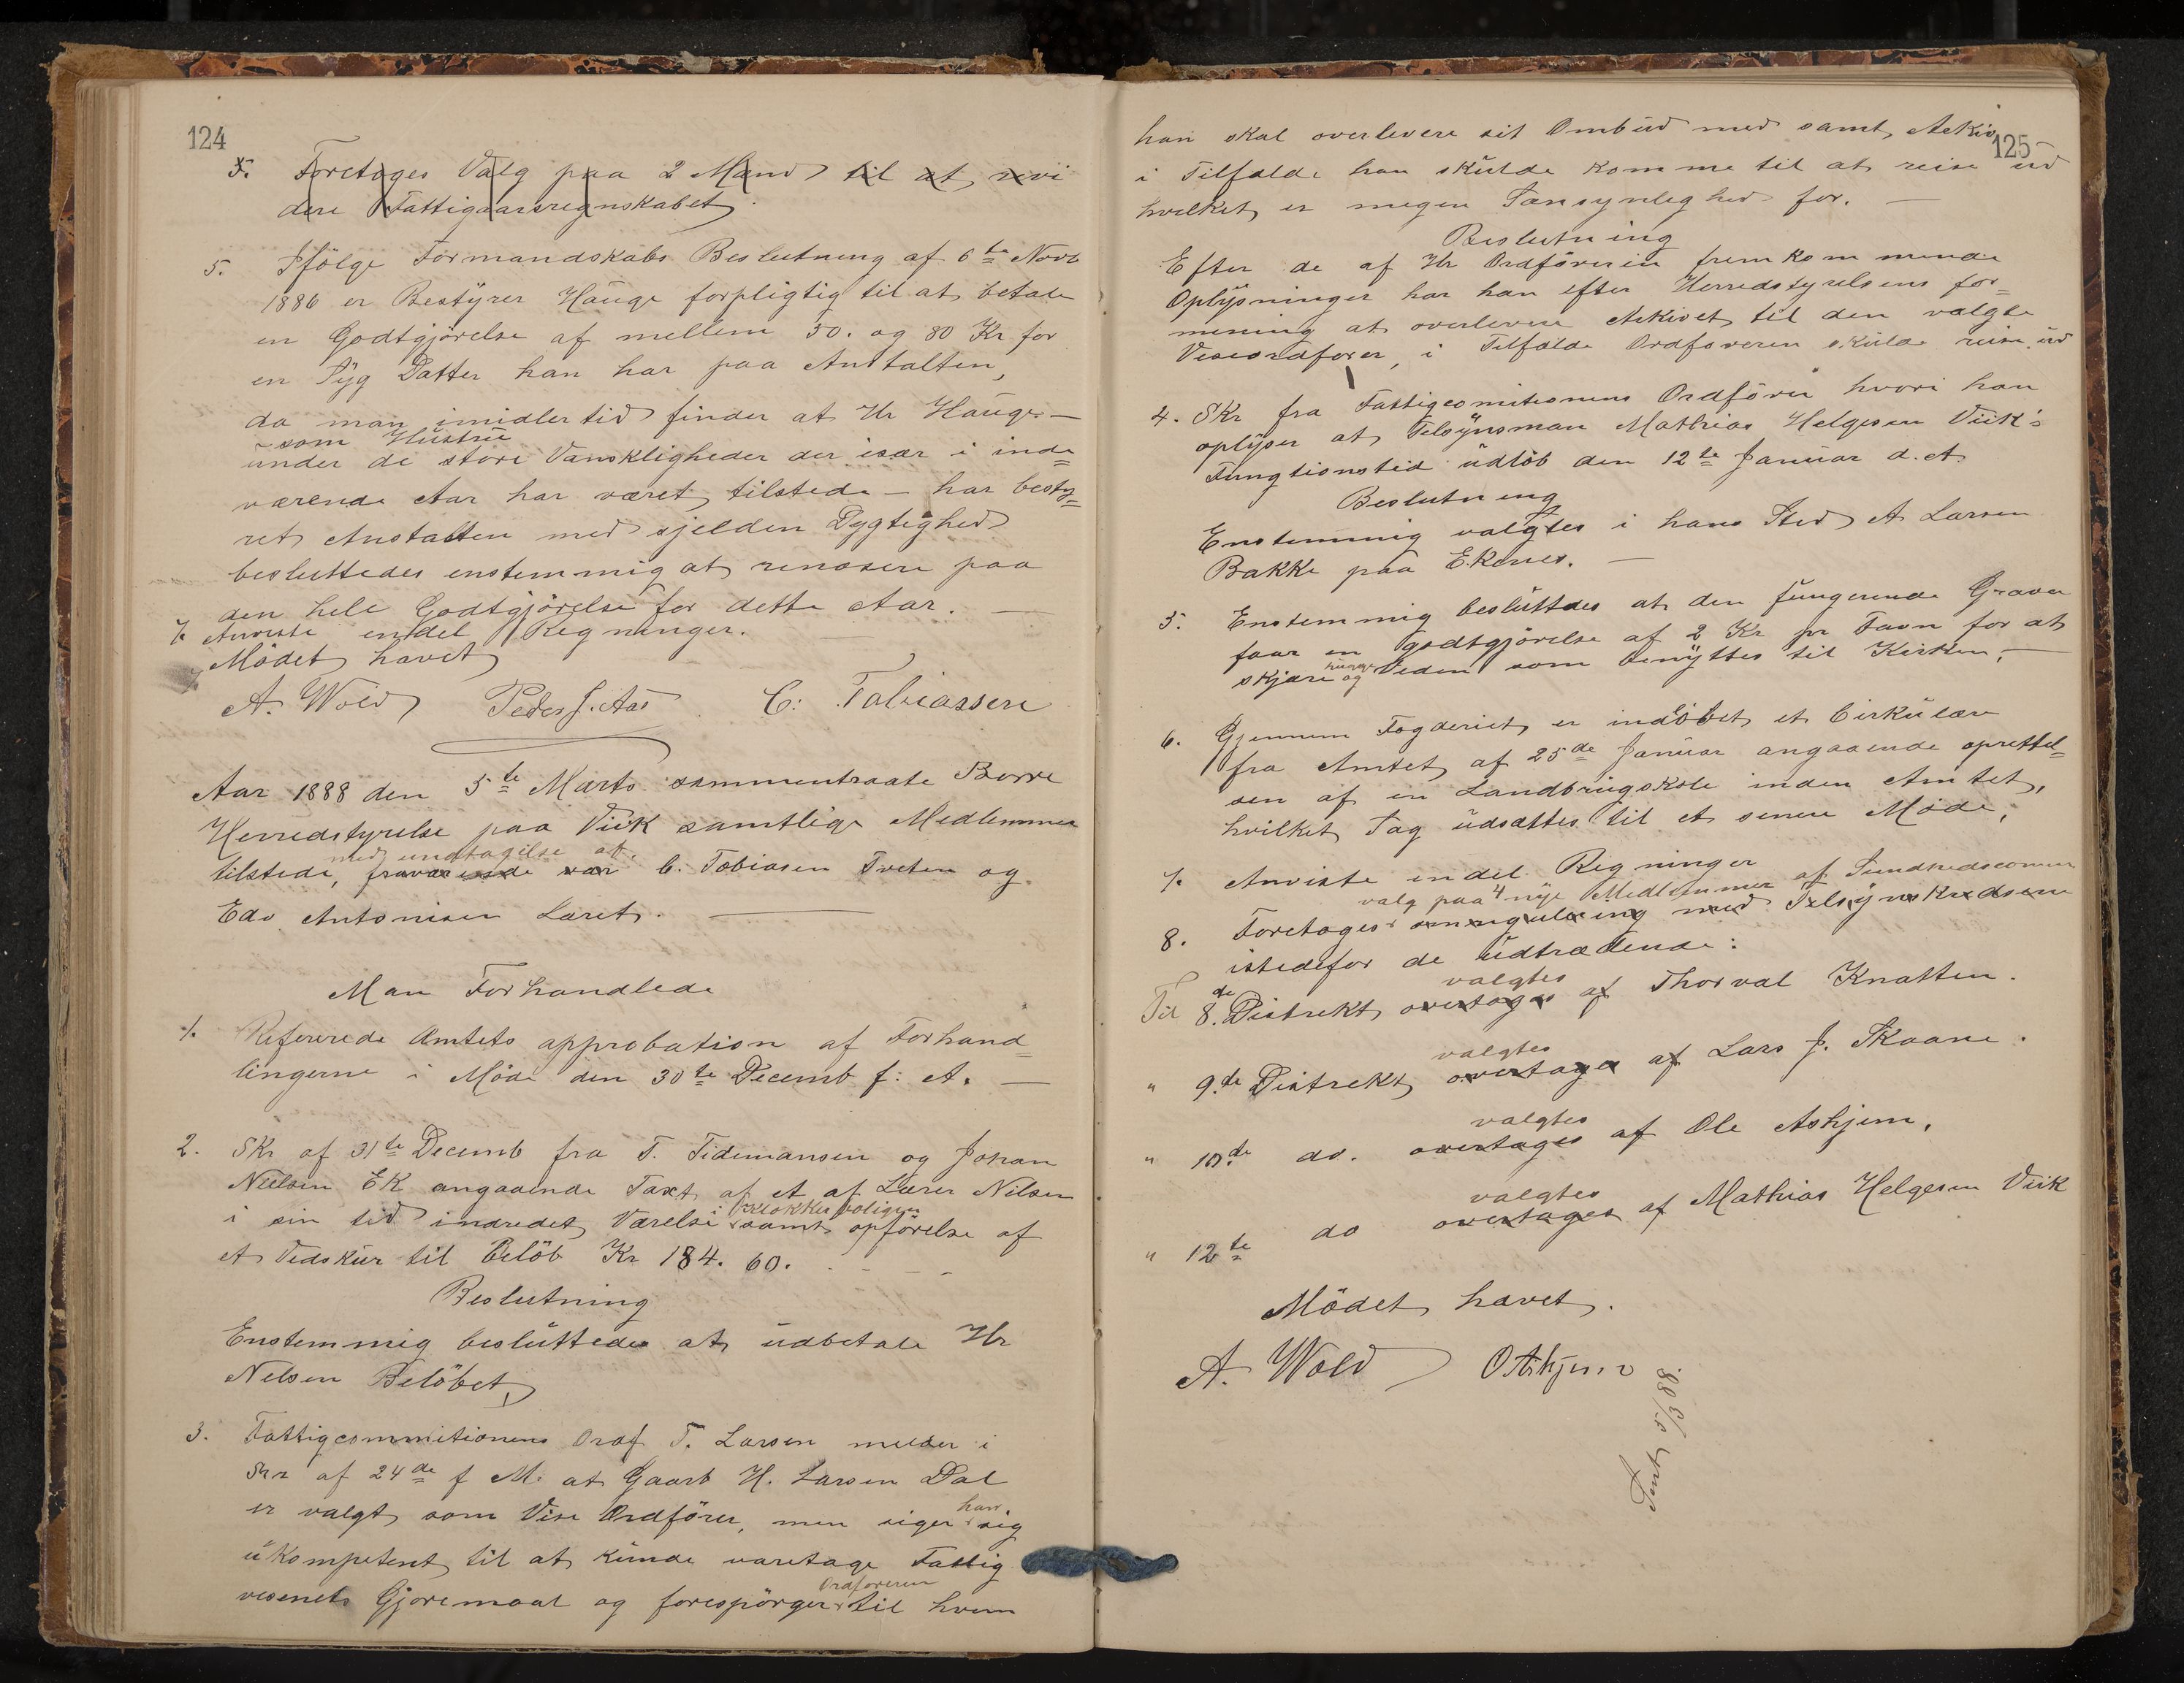 124
5. Foretages Valg paa 2 Mand til at revi
dere Fattigaarsregnskabet.
5. Ifölge Formandskabs Beslutning af 6te Novb
1886 er Bestyrer Hauge forpligtig til at betale
en Godtgjörelse af mellem 50. og 80 Kr for
en Syg Datter han har paa Anstalten,
da man imidlertid finder at Hr Hauge —
– som Hustrue
under de store Vanskligheder der især i inde=
værende Aar har været tilstede — har besty=
ret Anstalten med sjelden Dygtighed
besluttedes enstemmig at renosere paa
den hele Godtgjörelse for dette Aar. —
7. Anviste endel Regninger.
Mödet hævet
A. Wold Peder J. Aas C: Tobiassen
Aar 1888 den 5te Marts sammentraate Borre
Herredstyrelse paa Viik samtlige Medlemmer
med undtagelse af.
tilstede, fraværende var C. Tobiasen Tveten og
Edv Antonisen Laret. —
Man Forhandlede
1. Refererede Amtets approbation af Forhand=
lingerne i Möde den 30te Decemb f: A. —
2. Skr af 31te Decemb fra T. Tidemansen og Johan
Nielsen EK angaaende Taxt af et af Lærer Nilsen
i Klokkerboligen
i sin tid indredet Værelse samt opförelse af
et Vedskur til Belöb Kr 184. 60.
Beslutning
Enstemmig besluttedes at udbetale Hr
Nelsen Belöbet
3. Fattigcommitionens Ordf T. Larsen melder i
Skr af 24de f M. at Gaarb H. Larsen Dal
er valgt som Vise Ordförer, men siger han sig
ukompetent til at kunde varetage Fattig
Ordföreren
vesenets Gjöremaal og forespörger til hvem
125
han skal overlevere sit Ombud med samt Arkiv
i Tilfælde han skulde komme til at reise ud
hvilket er megen Sansynleghed for. —
Beslutning
Efter de af Hr Ordföreren fremkommende
Oplysninger har han efter Herredstyrelsens for=
mening at overlevere Arkivet til den valgte
Viseordförer, i Tilfælde Ordföreren skulde reise ud
4. Skr fra Fattigcomitionens Ordförer hvori han
oplyser at Tilsynsman Mathias Helgesen Viik's
Fungtionstid udlöb den 12te Januar d. A.
Beslutning
Enstemmig valgtes i hans Sted A Larsen
Bakke paa Ekenes. —
5. Enstemmig besluttdes at den fungerende Graver
faar en godtgjörelse af 2 Kr pr Favn for at
hugge
skjære og Veden som benyttes til Kirken; —
6. Gjennem Fogderiet er indlöbet et Cirkulære
fra Amtet af 25de Januar angaaende oprettel=
sen af en Landbrugskole inden Amtet,
hvilket Sag udsættes til et senere Möde;
7. Anviste endel Regninger
valg paa 4 nye Medlemmer af Sundhedscomm
8. Foretages omregulering med Tilsynskredsene
istedefor de udtrædende:
valgtes
Til 8.de Distrekt overtages af Thorval Knatten.
valgtes
" 9.de Distrekt overtages af Lars J. Skaane.
valgtes
" 10.de do. overtages af Ole Askjem.
valgtes
" 12te do overtages af Mathias Helgesen Viik
Mödet hævet.
A. Wold O Askjem
Sent 5/3 88.